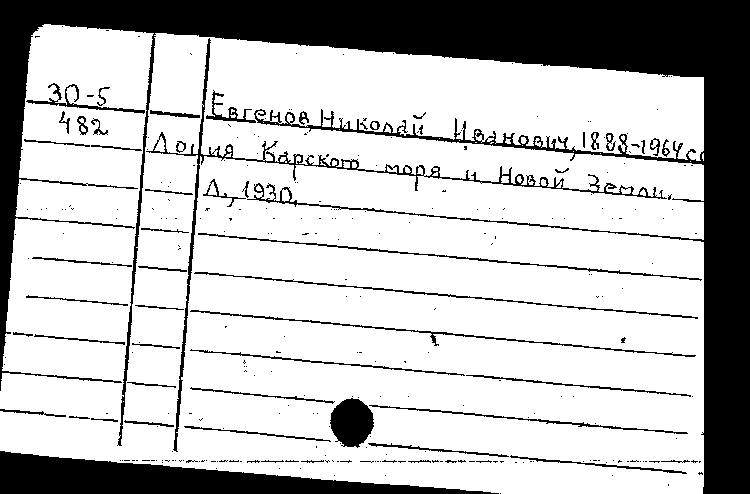 30-5
482
Евгенов, Николай Иванович, 1888-1964 сс
Лоция Карского моря и Новой Земли.
Л., 1930.